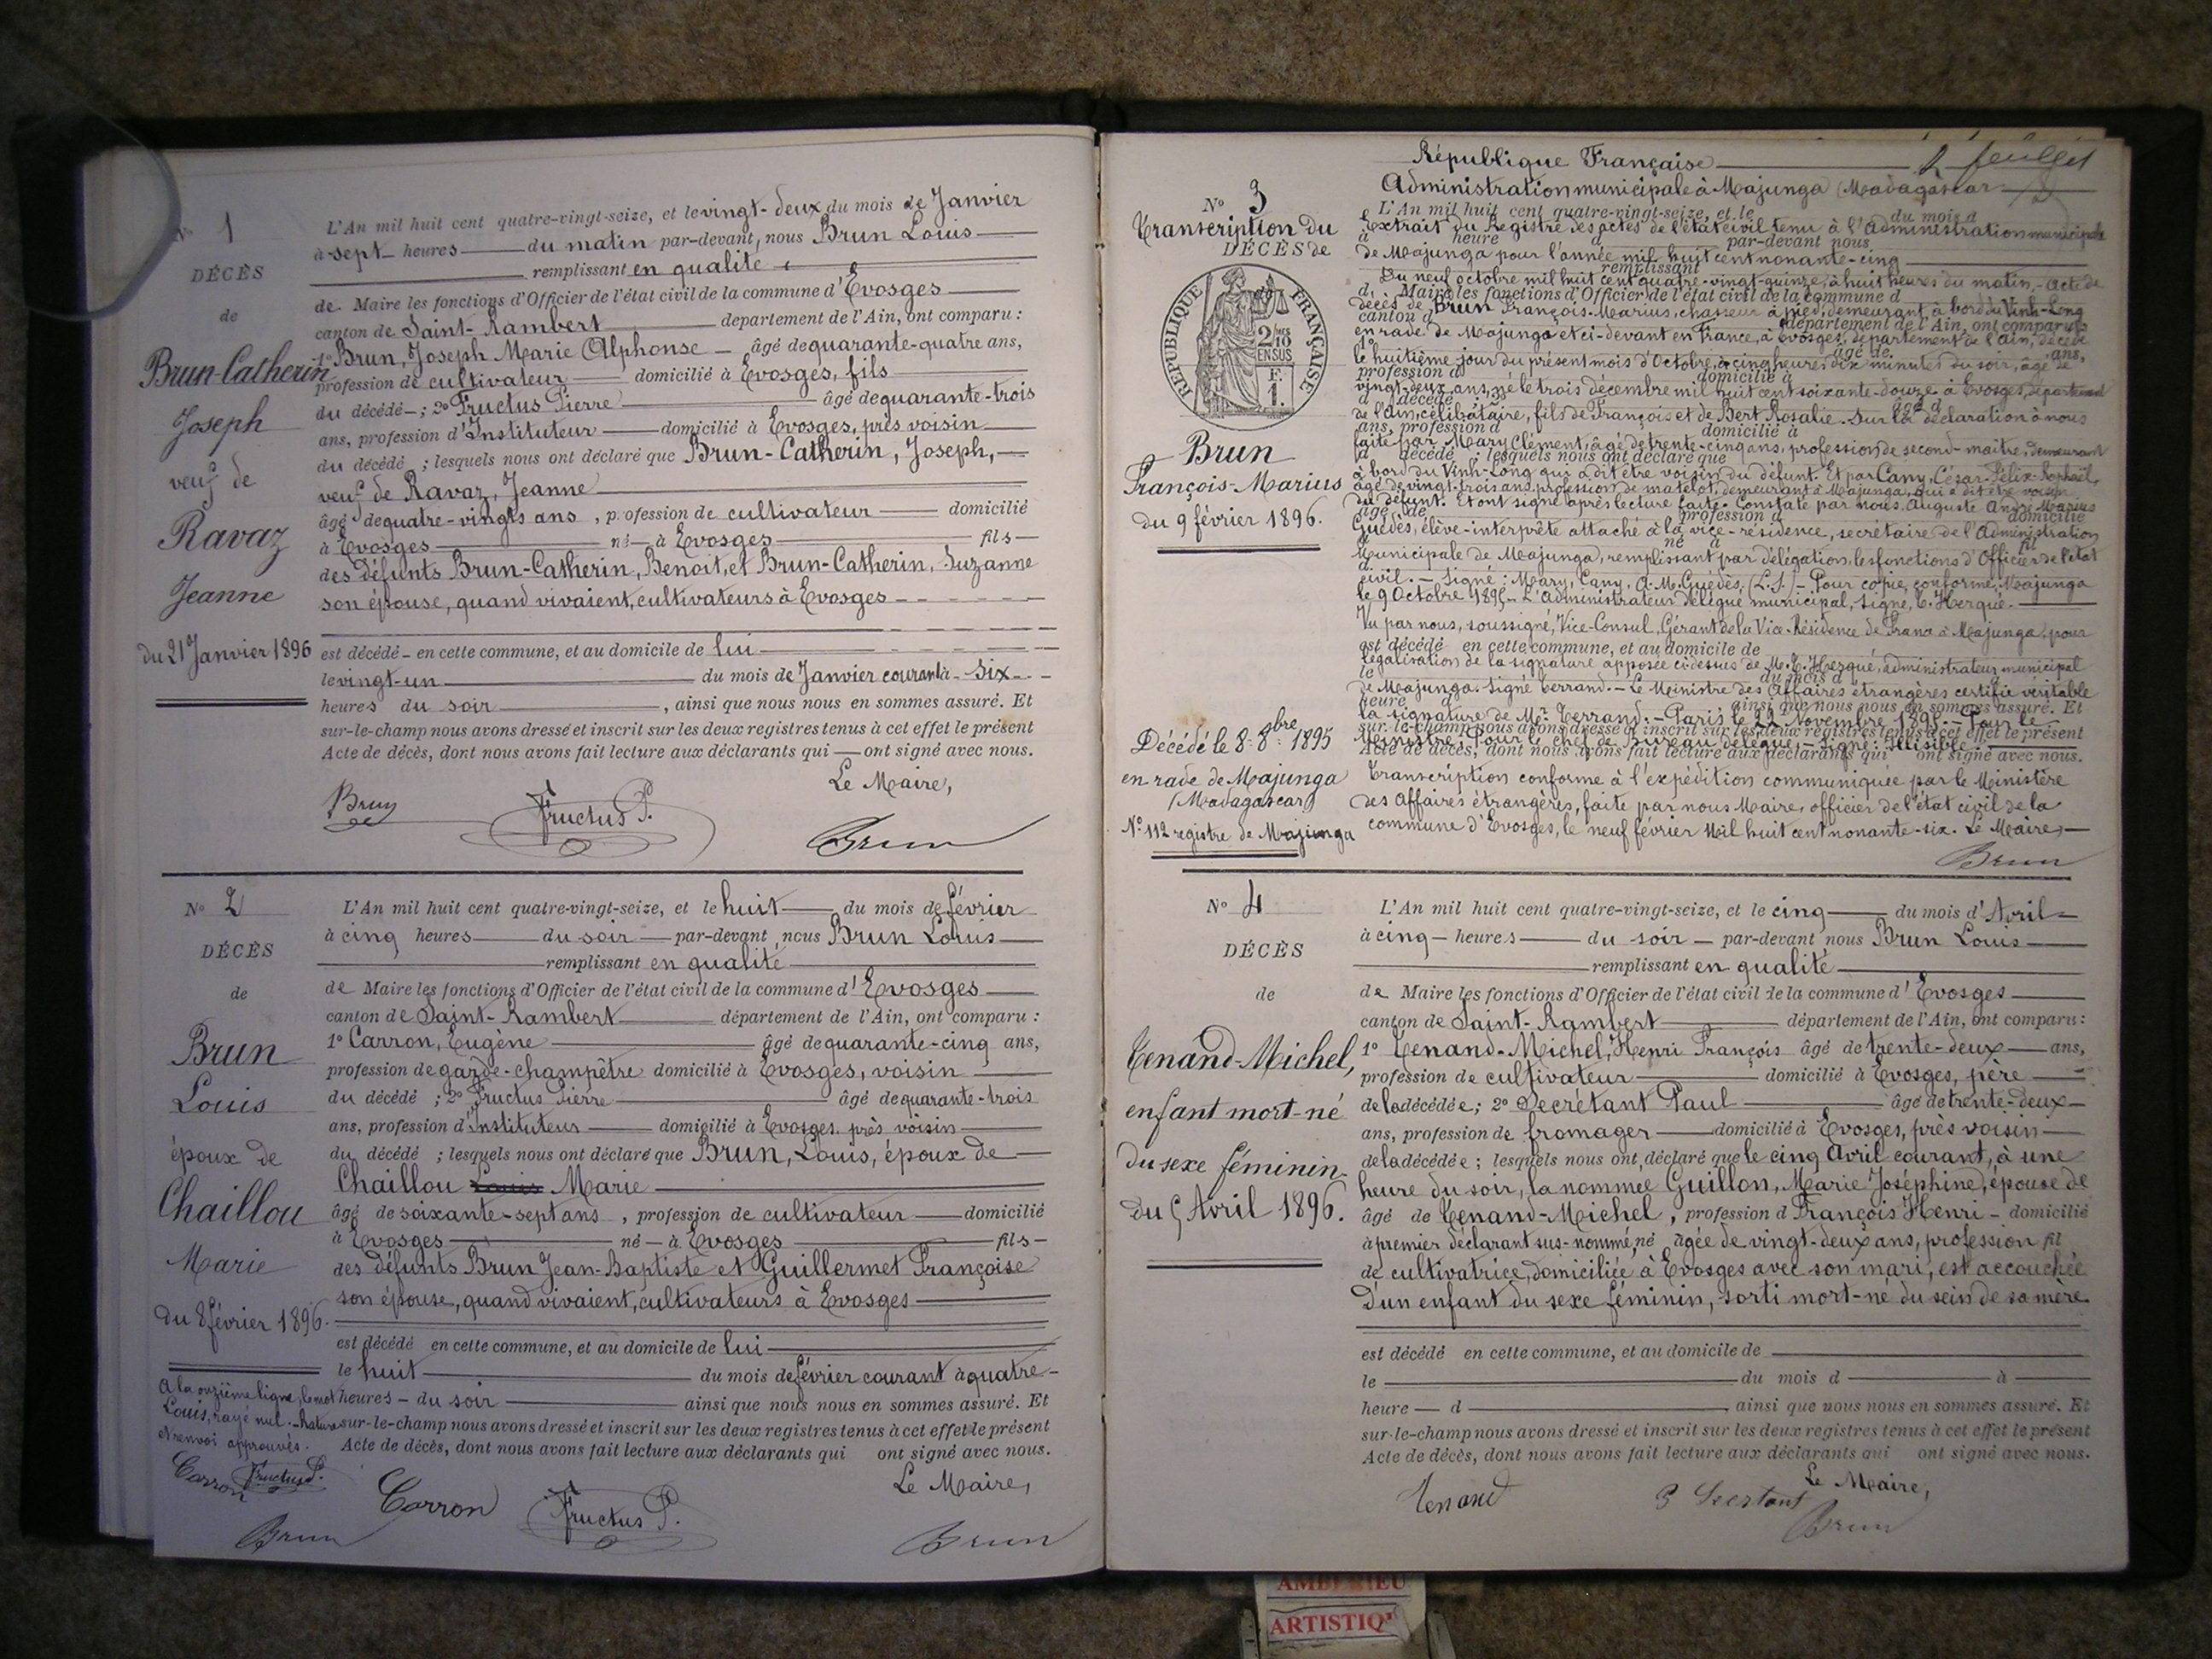 N° 1
DÉCÈS
de
Brun-Catherin
Joseph
veuf de
Ravaz
Jeanne
du 21 Janvier 1896
L'An mil huit cent quatre-vingt-seize, et le vingt-deux du mois de Janvier
à sept heures du matin par-devant, nous Brun Louis
remplissant en qualité
de Maire les fonctions d'Officier de l'état civil de la commune d'Evosges
canton de Saint-Rambert département de l'Ain, ont comparu :
1° Brun, Joseph Marie Alphonse âgé de quarante-quatre ans,
profession de cultivateur domicilié à Evosges, fils
du décédé ; 2° Fructus Pierre âgé de quarante-trois
ans, profession d'Instituteur domicilié à Evosges, près voisin
du décédé ; lesquels nous ont déclaré que Brun-Catherin, Joseph,
veuf de Ravaz, Jeanne
âgé de quatre-vingts ans, profession de cultivateur domicilié
à Evosges né à Evosges fils
des défunts Brun-Catherin, Benoit, et Brun-Catherin, Suzanne
son épouse, quand vivaient, cultivateurs à Evosges
est décédé en cette commune, et au domicile de lui
le vingt-un du mois de Janvier courant à six
heures du soir, ainsi que nous nous en sommes assuré. Et
sur-le-champ nous avons dressé et inscrit sur les deux registres tenus à cet effet le présent
Acte de décès, dont nous avons fait lecture aux déclarants qui ont signé avec nous.
Le Maire,
Brun Fructus P. Brun
N° 2
DÉCÈS
de
Brun
Louis
époux de
Chaillou
Marie
du 8 février 1896.
A la onzième ligne, le mot
Louis, rayé nul. Rature
et renvoi approuvés.
Carron Fructus P.
Brun
L'An mil huit cent quatre-vingt-seize, et le huit du mois de février
à cinq heures du soir par-devant nous Brun Louis
remplissant en qualité
de Maire les fonctions d'Officier de l'état civil de la commune d'Evosges
canton de Saint-Rambert département de l'Ain, ont comparu :
1° Carron, Eugène âgé de quarante-cinq ans,
profession de garde-champêtre domicilié à Evosges, voisin
du décédé ; 2° Fructus Pierre âgé de quarante-trois
ans, profession d'Instituteur domicilié à Evosges près voisin
du décédé ; lesquels nous ont déclaré que Brun, Louis, époux de
Chaillou Louis Marie
âgé de soixante-sept ans, profession de cultivateur domicilié
à Evosges né à Evosges fils
des défunts Brun Jean-Baptiste et Guillermet Françoise
son épouse, quand vivaient, cultivateurs à Evosges
est décédé en cette commune, et au domicile de lui
le huit du mois de février courant à quatre
heures du soir ainsi que nous nous en sommes assuré. Et
sur-le-champ nous avons dressé et inscrit sur les deux registres tenus à cet effet le présent
Acte de décès, dont nous avons fait lecture aux déclarants qui ont signé avec nous.
Le Maire,
Carron Fructus P. Brun
2 feuillet
N° 3
Transcription du
DÉCÈS de
RÉPUBLIQUE FRANÇAISE
Brun
François-Marius
du 9 février 1896.
Décédé le 8 8bre 1895
en rade de Majunga
(Madagascar)
N° 112 registre de Majunga
République Française
Administration municipale à Majunga (Madagascar
Extrait du Registre des actes de l'état civil tenu à l'Administration municipale
de Majunga pour l'année mil huit cent nonante-cinq
Du neuf octobre mil huit cent quatre-vingt-quinze, à huit heures du matin, Acte de
décès de Brun François-Marius, chasseur à pied, demeurant à bord du Vinh-Long
en rade de Majunga et ci-devant en France, à Evosges, département de l'Ain, décédé
le huitième jour du présent mois d'Octobre, à cinq heures dix minutes du soir, âgé de
vingt-deux ans, né le trois décembre mil huit cent soixante-douze à Evosges, département
de l'Ain, célibataire, fils de François et de Bert Rosalie. Sur la déclaration à nous
faite par Mary Clément, âgé de trente-cinq ans, profession de second-maître, demeurant
à bord du Vinh-Long qui a dit être voisin du défunt. Et par Cany, César-Félix-Raphaël,
âgé de vingt-trois ans, profession de matelot, demeurant à Majunga, qui a dit être voisin
du défunt. Et ont signé après lecture faite. Constaté par nous, Auguste André Marius
Guédès, élève-interprète attaché à la vice-résidence, secrétaire de l'Administration
Municipale de Majunga, remplissant par délégation, les fonctions d'Officier de l'état
civil. Signé : Mary, Cany, A. M. Guédès, (L.S.) Pour copie conforme, Majunga
le 9 Octobre 1895. L'administrateur délégué municipal, signé, E. Herqué.
Vu par nous, soussigné, Vice-Consul, Gérant de la Vice-Résidence de France à Majunga, pour
légalisation de la signature apposée ci-dessus de M. E. Herqué, administrateur municipal
de Majunga. Signé Ferrand. Le Ministre des Affaires étrangères certifie véritable
la signature de Mr. Ferrand. Paris le 22 Novembre 1895. Pour le
Ministre, Pour le chef de bureau délégué, Signé : Illisible.
Transcription conforme à l'expédition communiquée par le Ministère
des Affaires étrangères, faite par nous Maire, officier de l'état civil de la
commune d'Evosges, le neuf février mil huit cent nonante-six. Le Maire,
Brun
N° 4
DÉCÈS
de
Tenand-Michel,
enfant mort-né
du sexe féminin
du 5 Avril 1896.
L'An mil huit cent quatre-vingt-seize, et le cinq du mois d'Avril
à cinq heures du soir par-devant nous Brun Louis
remplissant en qualité
de Maire les fonctions d'Officier de l'état civil de la commune d'Evosges
canton de Saint-Rambert département de l'Ain, ont comparu :
1° Tenand-Michel, Henri François âgé de trente-deux ans,
profession de cultivateur domicilié à Evosges, père
de la décédée ; 2° Secrétant Paul âgé de trente-deux
ans, profession de fromager domicilié à Evosges, près voisin
de la décédée ; lesquels nous ont déclaré que le cinq Avril courant, à une
heure du soir, la nommée Guillon, Marie Joséphine, épouse de
âgé de Tenand-Michel, profession d François Henri domicilié
à premier déclarant sus-nommé, né âgée de vingt-deux ans, profession fil
de cultivatrice, domiciliée à Evosges avec son mari, est accouchée
d'un enfant du sexe féminin, sorti mort-né du sein de sa mère
est décédé en cette commune, et au domicile de
le du mois d à
heure d ainsi que nous nous en sommes assuré. Et
sur-le-champ nous avons dressé et inscrit sur les deux registres tenus à cet effet le présent
Acte de décès, dont nous avons fait lecture aux déclarants qui ont signé avec nous.
Le Maire,
Tenand P Secrétant Brun
ARTISTIQ